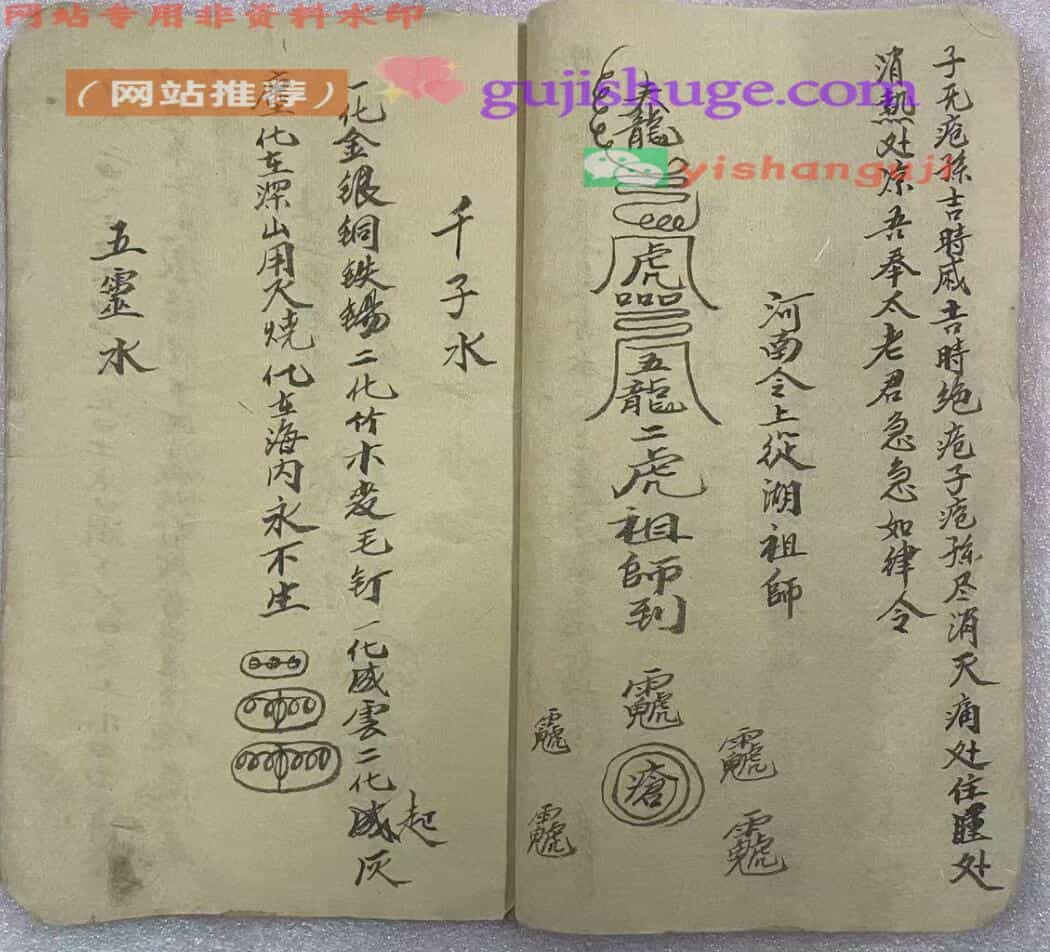 网站专用非资料水印
(网站推荐)
gujishuge.com
yishanguji
子无疮孫吉時戚吉時绝疮子疮孫尽消灭痛处住瞳处
消熱处凉吾奉太老君急急如律令
河南令上從湖祖師
龍
虎
五龍二虎祖師到
瘡
千子水
一化金銀铜铁锡二化竹木发毛钉一化成雲二化成灰
起
化在深山用火燒化在海内永不生
五靈水